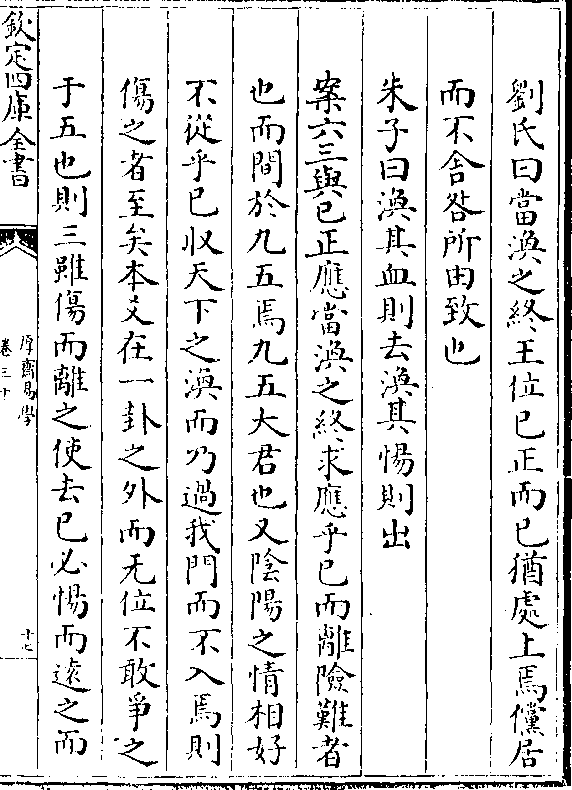 劉氏曰當渙之終王位已正而已猶處上焉儻居
而不舍咎所由致也
朱子曰渙其血則去渙其惕則出
案六三與已正應當渙之終求應乎已而離險難者
也而間於九五焉九五大君也又陰陽之情相好
不從乎已收天下之渙而乃過我門而不入焉則
傷之者至矣本爻在一卦之外而无位不敢爭之
于五也則三雖傷而離之使去已必惕而遠之而
欽定四庫全書
厚齋易學
卷三十
十七